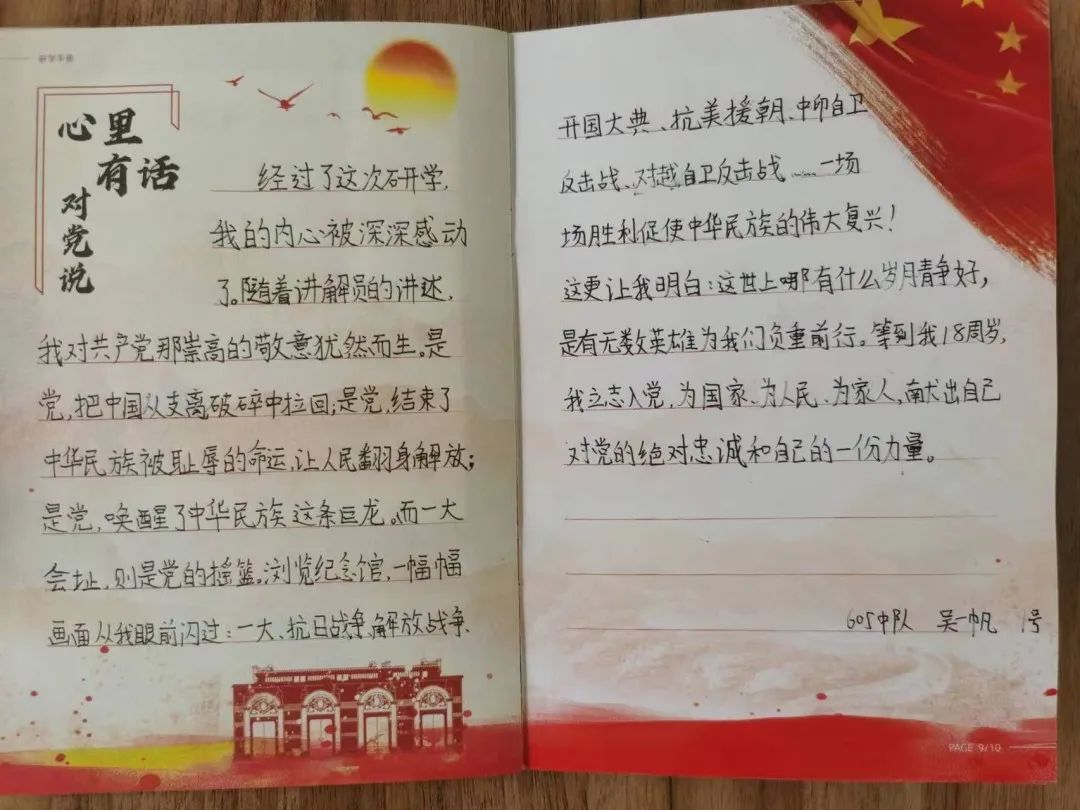 研学手册
心里
有话
对党说
经过了这次研学，
我的内心被深深感动
了。随着讲解员的讲述，
我对共产党那崇高的敬意犹然而生。是
党，把中国从支离破碎中拉回；是党，结束了
中华民族被耻辱的命运，让人民翻身解放；
是党，唤醒了中华民族这条巨龙。而一大
会址，则是党的摇篮。浏览纪念馆，一幅幅
画面从我眼前闪过：一大、抗日战争、解放战争、
开国大典、抗美援朝、中印自卫
反击战、对越自卫反击战……一场
场胜利促使中华民族的伟大复兴！
这更让我明白：这世上哪有什么岁月静好，
是有无数英雄为我们负重前行。等到我18周岁，
我立志入党，为国家、为人民、为家人，献出自己
对党的绝对忠诚和自己的一份力量。
605中队 吴一帆 1号
PAGE 9/10